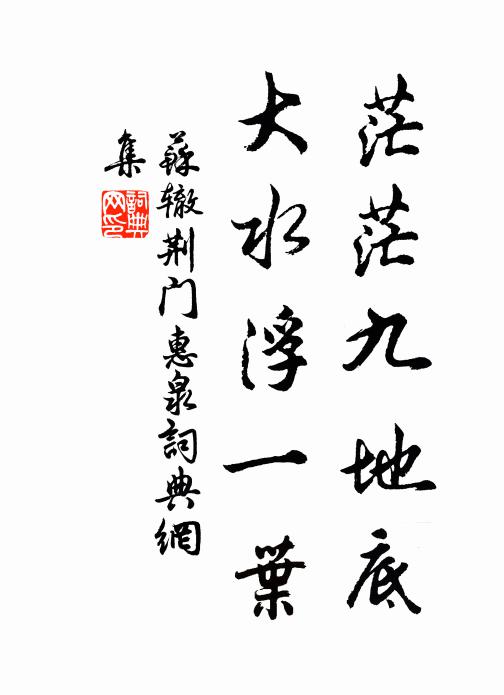 茫茫九地底
大水浮一葉
蘇辙荆门惠泉詞典網
集
詞典网印